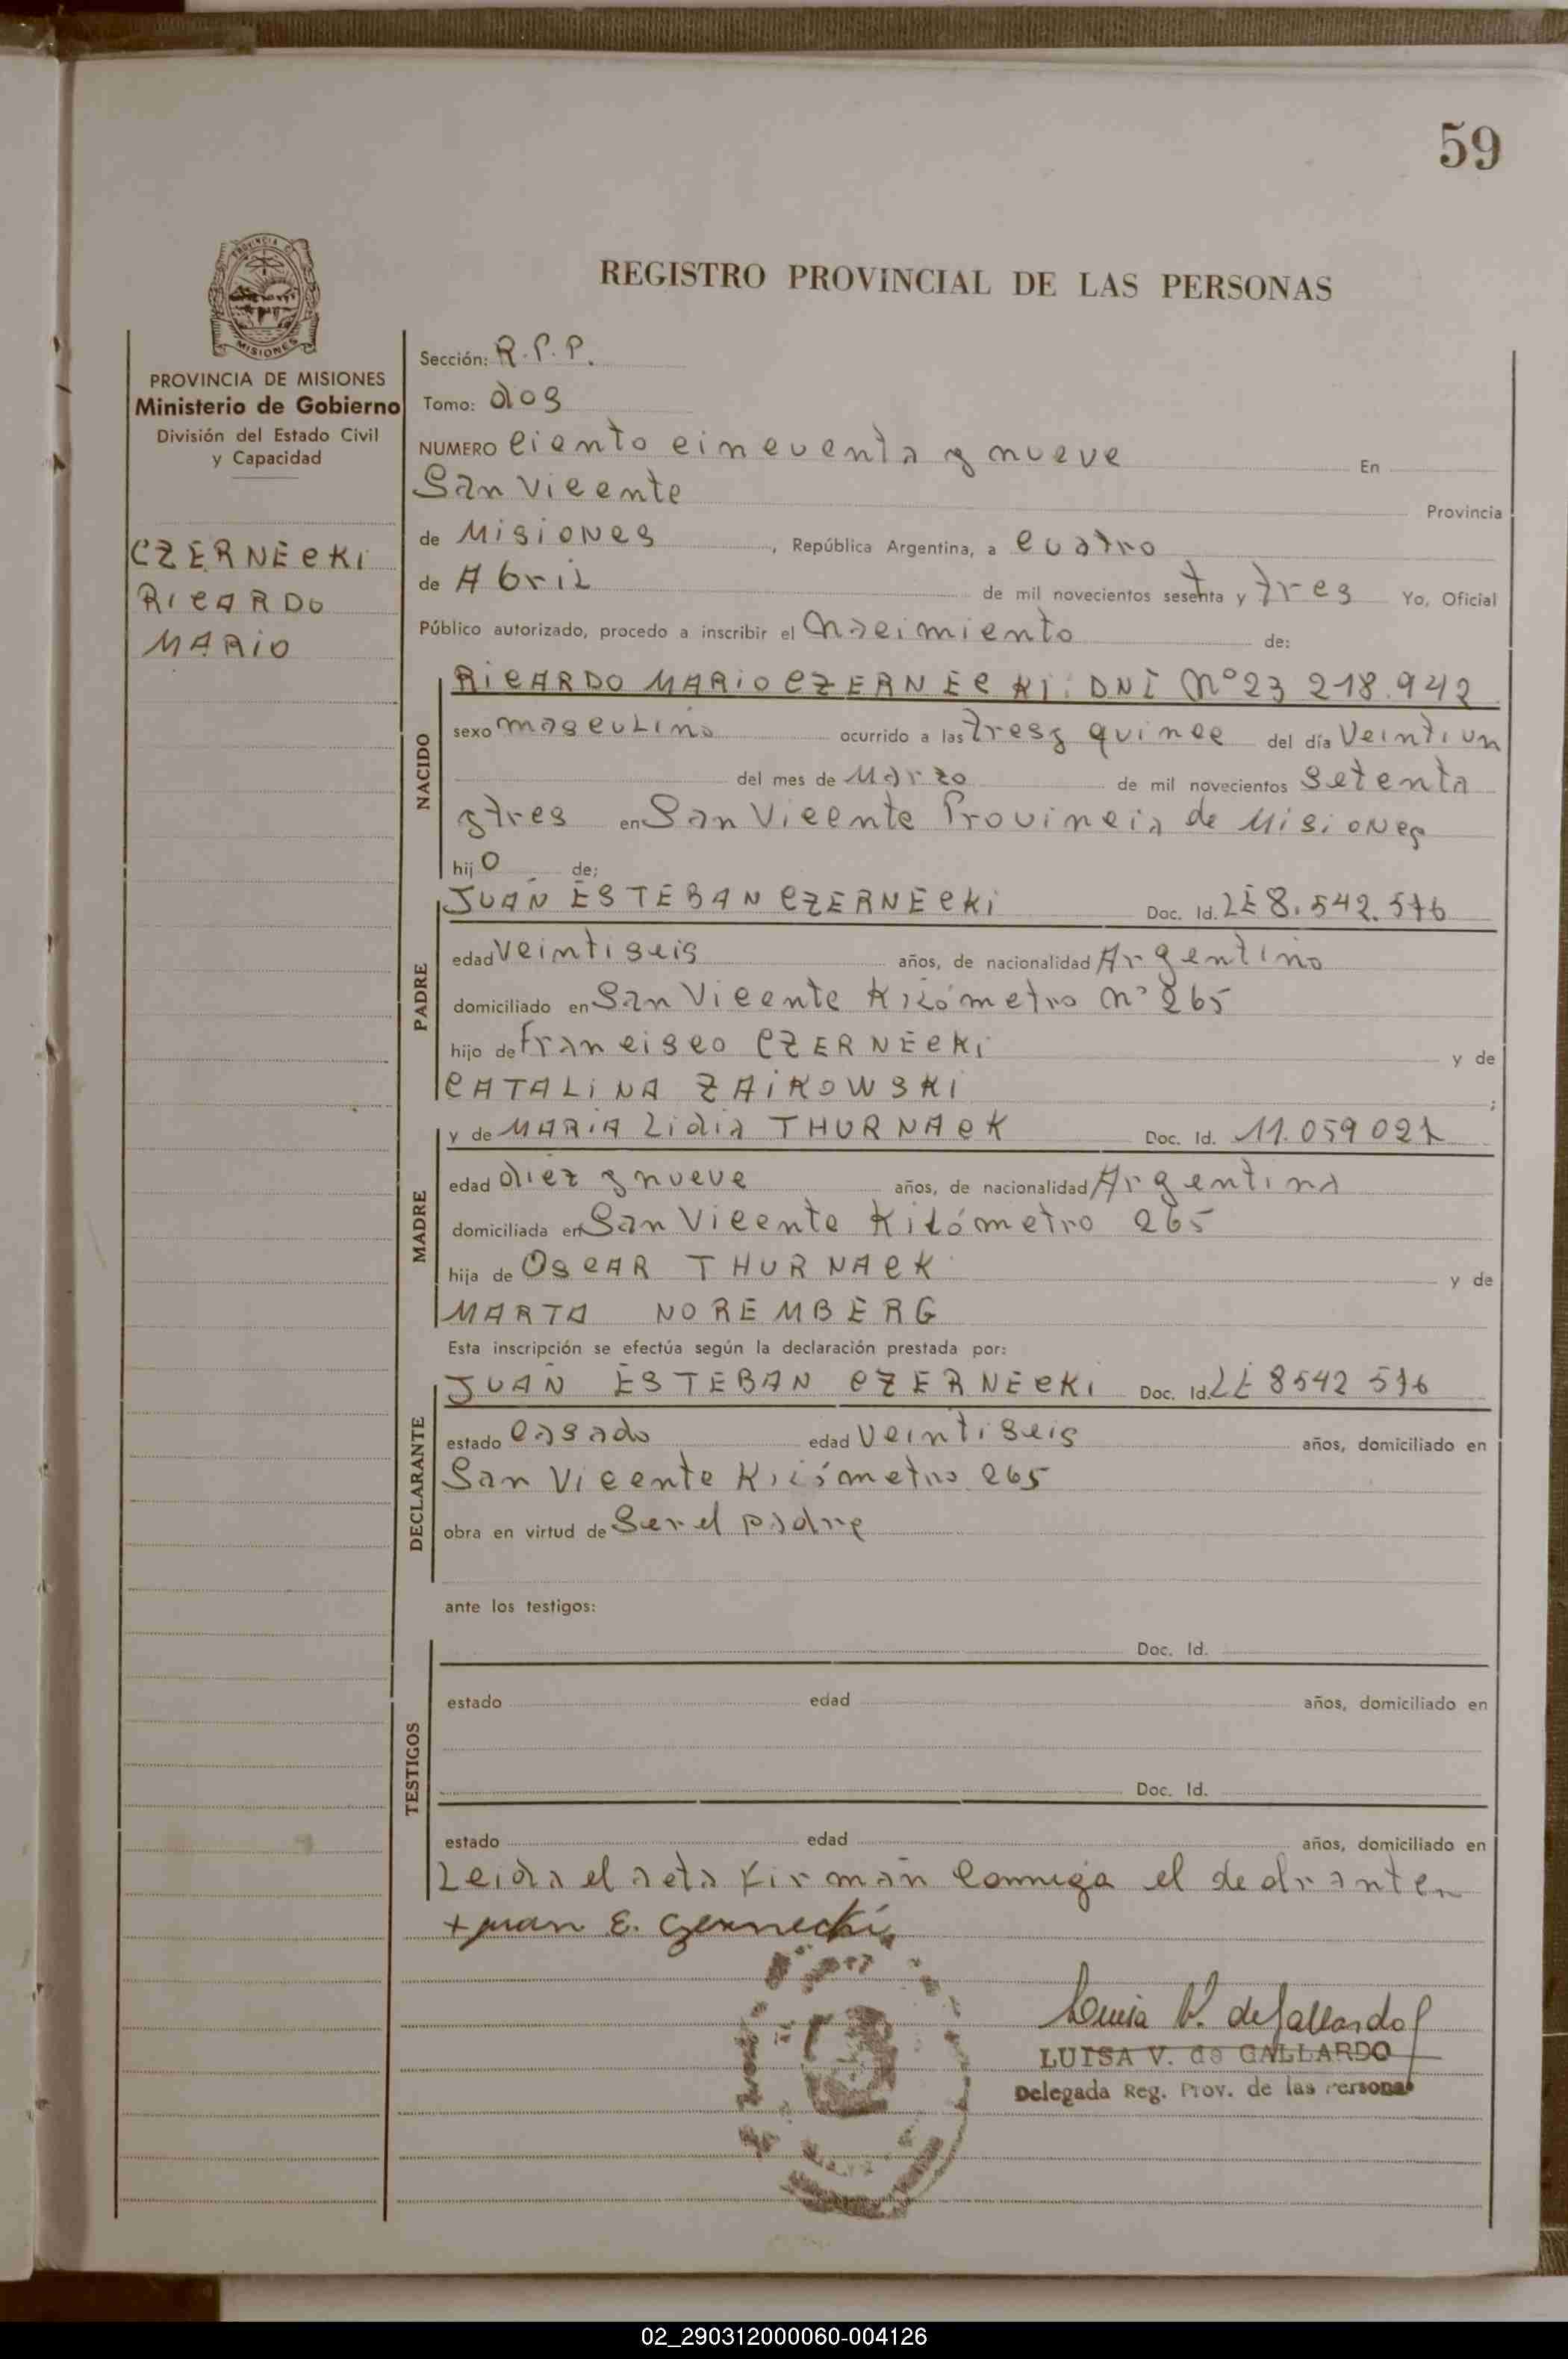 59
PROVINCIA DE
MISIONES
REGISTRO PROVINCIAL DE LAS PERSONAS
PROVINCIA DE MISIONES
Ministerio de Gobierno
División del Estado Civil
y Capacidad
CZERNECKI
RICARDO
MARIO
Sección: R.P.P.
Tomo: dos
NUMERO ciento cincuenta y nueve En
San Vicente Provincia
de Misiones, República Argentina, a cuatro
de Abril de mil novecientos sesenta y tres Yo, Oficial
Público autorizado, procedo a inscribir el Nacimiento de:
NACIDO
RICARDO MARIO CZERNECKI. DNI Nº 23 218.942
sexo masculino ocurrido a las tres y quince del día Veintiun
del mes de Marzo de mil novecientos Setenta
y tres en San Vicente Provincia de Misiones
hijo de:
PADRE
JUAN ESTEBAN CZERNECKI Doc. Id. LE 8.542.576
edad Veintiseis años, de nacionalidad Argentino
domiciliado en San Vicente Kilómetro nº 265
hijo de Francisco CZERNECKI y de
CATALINA ZAIKOWSKI ;
MADRE
y de MARIA Lidia THURNACK Doc. Id. 11.059 021
edad diez y nueve años, de nacionalidad Argentina
domiciliada en San Vicente Kilómetro 265
hija de OSCAR THURNACK y de
MARTA NOREMBERG
Esta inscripción se efectúa según la declaración prestada por:
DECLARANTE
JUAN ESTEBAN CZERNECKI Doc. Id. LE 8542 576
estado casado edad Veintiseis años, domiciliado en
San Vicente Kilómetro 265
obra en virtud de Ser el padre
ante los testigos:
TESTIGOS
Doc. Id.
estado edad años, domiciliado en
Doc. Id.
estado edad años, domiciliado en
Leida el acta firman conmigo el
+ Juan E. Czernecki
Luisa V. de Gallardo
LUISA V. de GALLARDO
Delegada Reg. Prov. de las Personas
02_290312000060-004126